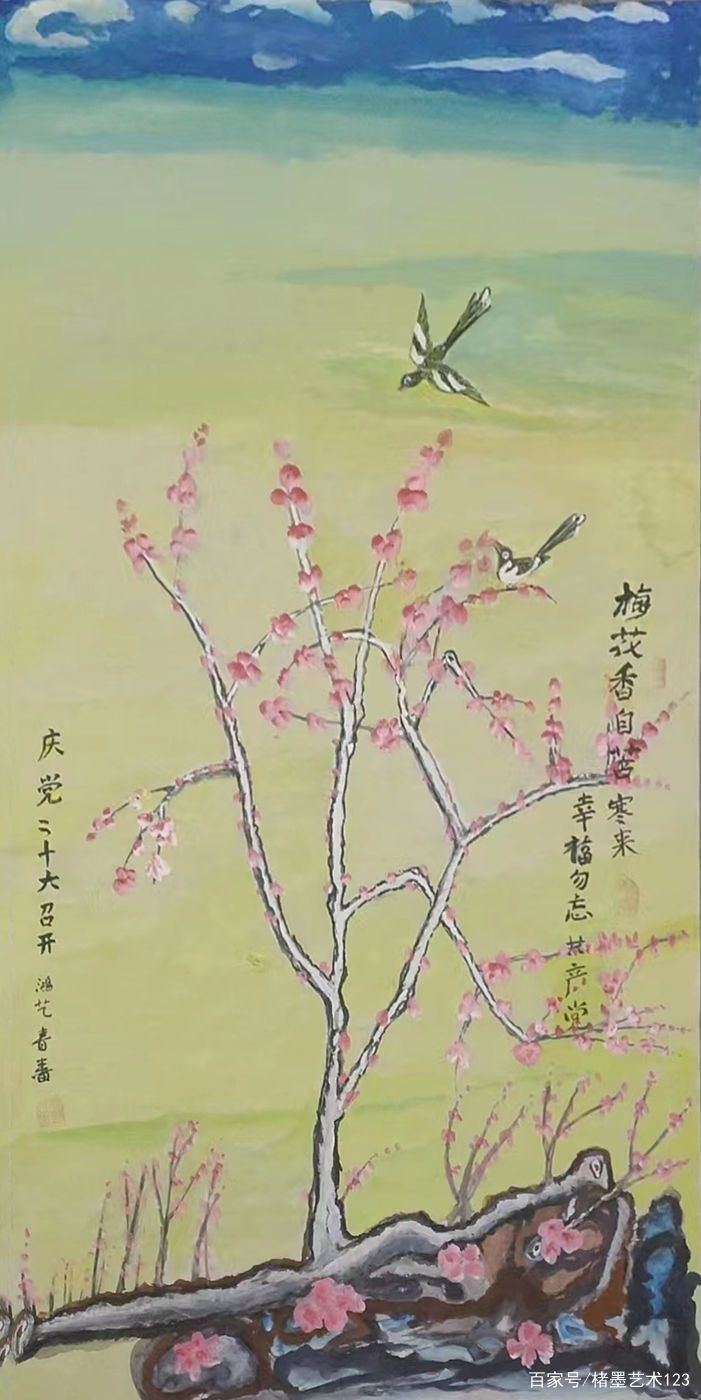 梅花香自苦寒来
幸福勿忘共产党
庆党二十大召开
鸿艺春
百家号/楮墨艺术123